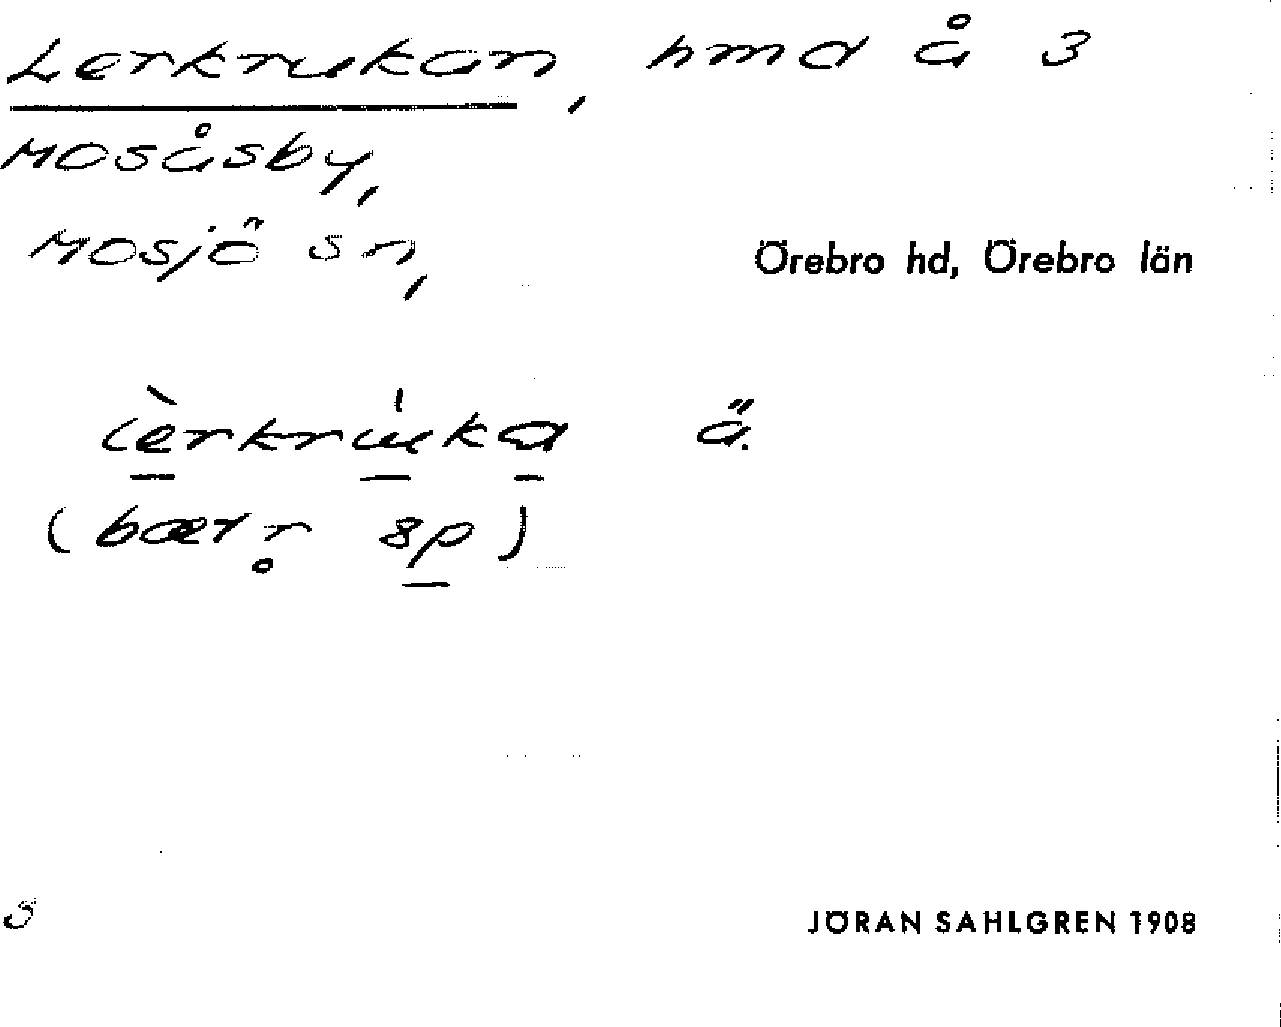 Lerkrukan, hmd å 3
Mosåsby,
Mosjö sn, Örebro hd, Örebro län
lèrkrúka ä.
(bætr̥ sp)
S
JÖRAN SAHLGREN 1908